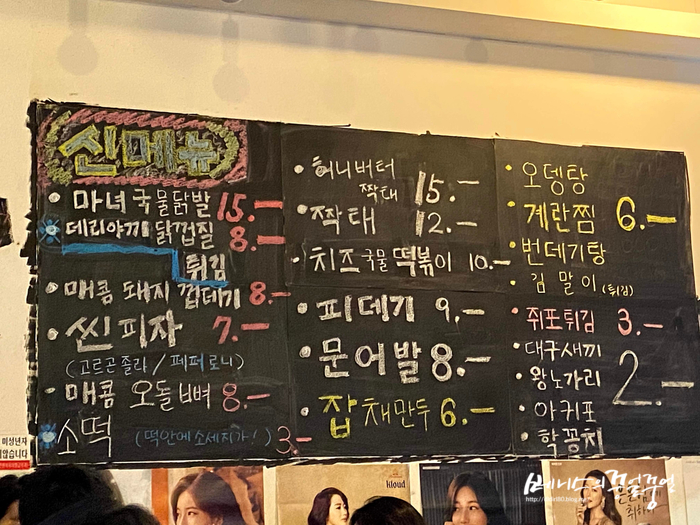 신메뉴
마녀국물닭발 15.-
데리야끼 닭껍질 8.-
튀김
매콤 돼지 껍데기 8.-
씬피자 7.-
(고르곤졸라/페퍼로니)
매콤 오돌뼈 8.-
소떡 (떡안에 소세지가!) 3.-
허니버터
짝태 15.-
짝태 12.-
치즈국물떡볶이 10.-
피데기 9.-
문어발 8.-
잡채만두 6.-
오뎅탕
계란찜 6.-
번데기탕
김말이 (튀김)
쥐포튀김 3.-
대구새끼
왕노가리 2.-
아귀포
학꽁치
미성년자
않습니다
kloud